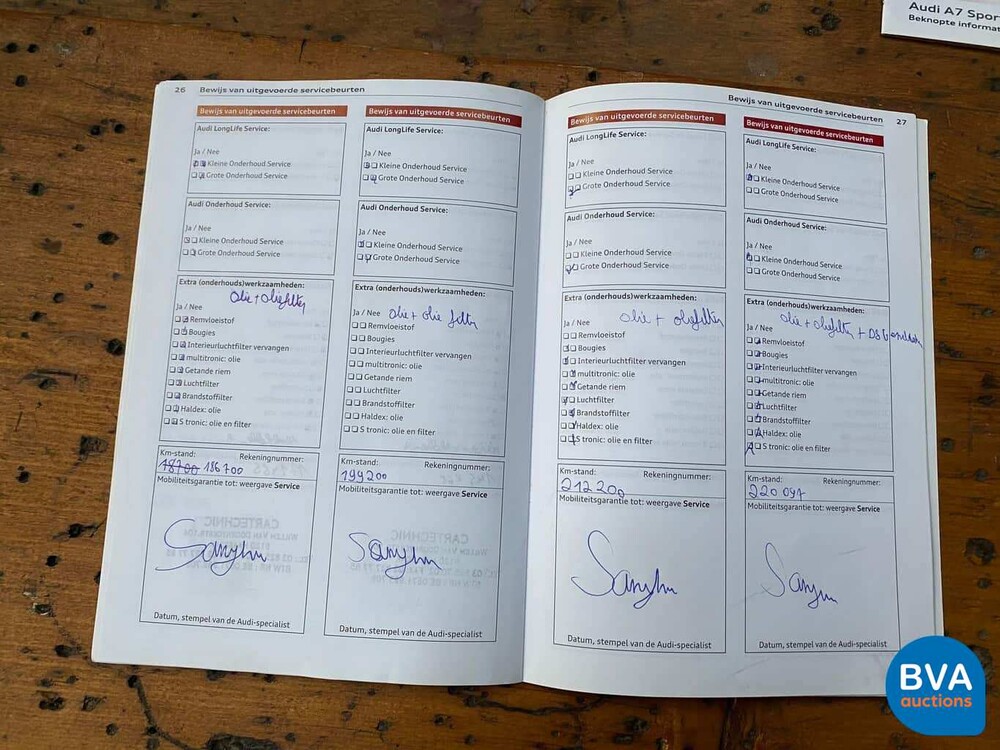 Audi A7 Spor
Beknopte informat
26 Bewijs van uitgevoerde servicebeurten
Bewijs van uitgevoerde servicebeurten
Audi LongLife Service:
Ja / Nee
Kleine Onderhoud Service
Grote Onderhoud Service
Audi Onderhoud Service:
Ja / Nee
Kleine Onderhoud Service
Grote Onderhoud Service
Extra (onderhouds)werkzaamheden:
olie + oliefilter
Ja / Nee
Remvloeistof
Bougies
Interieurluchtfilter vervangen
multitronic: olie
Getande riem
Luchtfilter
Brandstoffilter
Haldex: olie
S tronic: olie en filter
Km-stand: Rekeningnummer:
18700 186700
Mobiliteitsgarantie tot: weergave Service
Datum, stempel van de Audi-specialist
Bewijs van uitgevoerde servicebeurten
Audi LongLife Service:
Ja / Nee
Kleine Onderhoud Service
Grote Onderhoud Service
Audi Onderhoud Service:
Ja / Nee
Kleine Onderhoud Service
Grote Onderhoud Service
Extra (onderhouds)werkzaamheden:
Ja / Nee olie + olie filter
Remvloeistof
Bougies
Interieurluchtfilter vervangen
multitronic: olie
Getande riem
Luchtfilter
Brandstoffilter
Haldex: olie
S tronic: olie en filter
Km-stand: Rekeningnummer:
199200
Mobiliteitsgarantie tot: weergave Service
Datum, stempel van de Audi-specialist
Bewijs van uitgevoerde servicebeurten 27
Bewijs van uitgevoerde servicebeurten
Audi LongLife Service:
Ja / Nee
Kleine Onderhoud Service
Grote Onderhoud Service
Audi Onderhoud Service:
Ja / Nee
Kleine Onderhoud Service
Grote Onderhoud Service
Extra (onderhouds)werkzaamheden:
Ja / Nee olie + oliefilter
Remvloeistof
Bougies
Interieurluchtfilter vervangen
multitronic: olie
Getande riem
Luchtfilter
Brandstoffilter
Haldex: olie
S tronic: olie en filter
Km-stand: Rekeningnummer:
212 200
Mobiliteitsgarantie tot: weergave Service
Datum, stempel van de Audi-specialist
Bewijs van uitgevoerde servicebeurten
Audi LongLife Service:
Ja / Nee
Kleine Onderhoud Service
Grote Onderhoud Service
Audi Onderhoud Service:
Ja / Nee
Kleine Onderhoud Service
Grote Onderhoud Service
Extra (onderhouds)werkzaamheden:
olie + oliefilter +
Ja / Nee
Remvloeistof
Bougies
Interieurluchtfilter vervangen
multitronic: olie
Getande riem
Luchtfilter
Brandstoffilter
Haldex: olie
S tronic: olie en filter
Km-stand: Rekeningnummer:
220 097
Mobiliteitsgarantie tot: weergave Service
Datum, stempel van de Audi-specialist
BVA
auctions